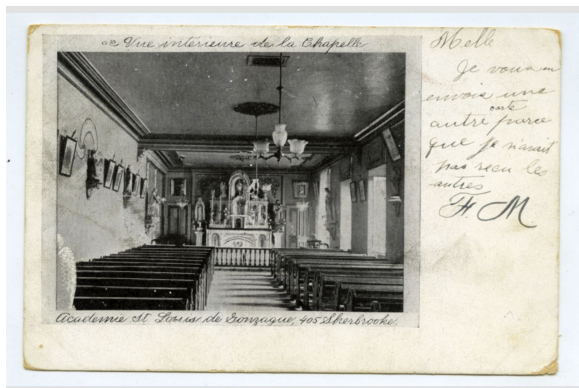 Vue intérieure de la Chapelle
Melle
Je vous en
envois une
carte
autre parce
que je n'avait
pas recu les
autres
F M
Academie St Louis de Gonzague, 405 Sherbrooke.